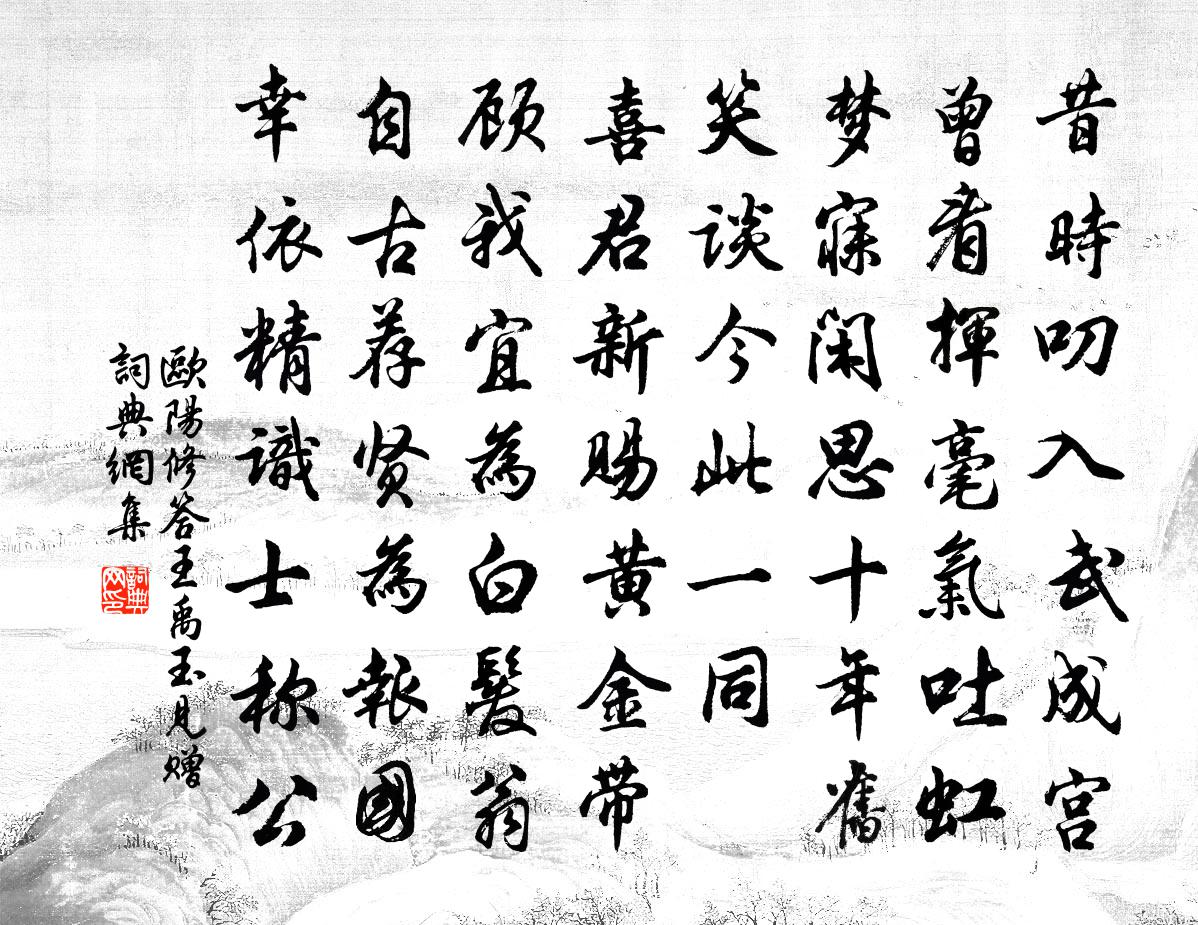 昔時叨入武成宫
曾看揮毫氣吐虹
梦寐闲思十年舊
笑谈今此一同
喜君新赐黄金带
顾我宜為白髮翁
自古荐贤為報國
幸依精識士称公
歐陽修答王禹玉見赠
詞典網集
詞典網印